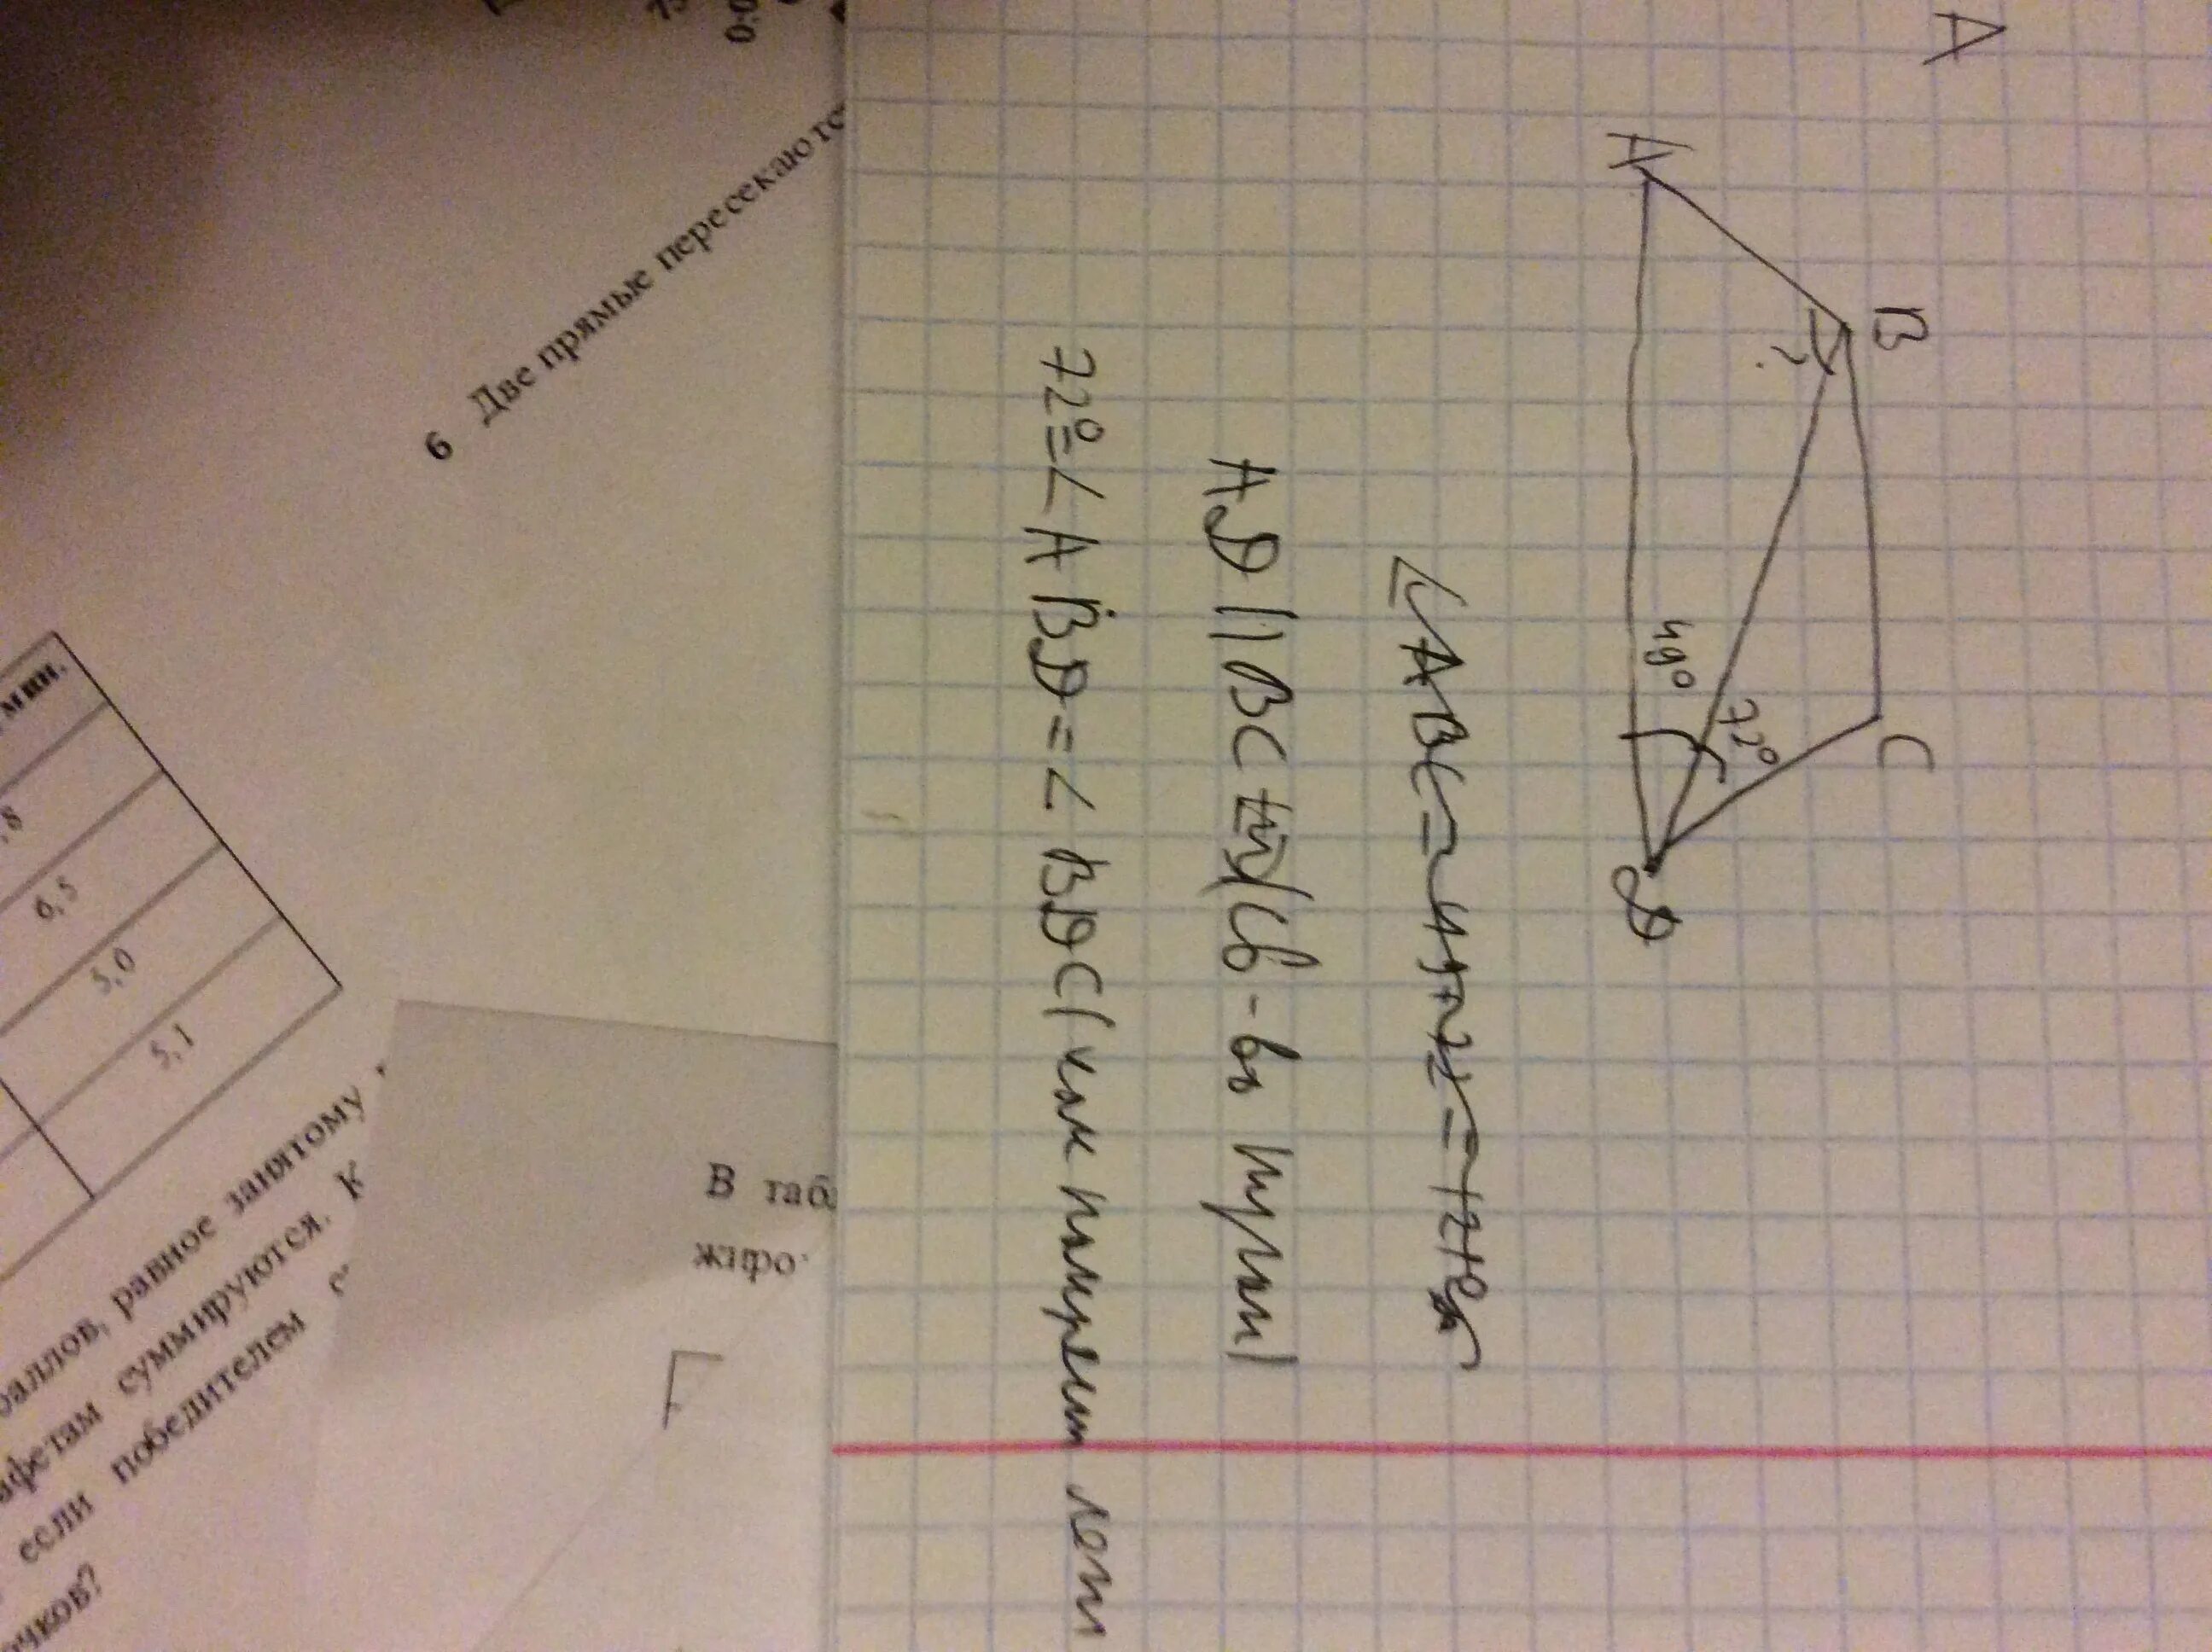 A
B
C
A
D
?
49°
72°
∠ABC=49+72=121°
AD || BC (св-во трап)
72°=∠ABD=∠BDC (как накрест леж
6 Две прямые пересекаютс
мин.
,8
6,5
5,0
5,1
баллов, равное занятому
афетам суммируются. К
если победителем
очков?
В таб
жиро